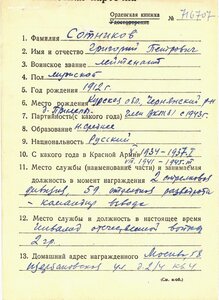 Орденская книжка
№ 716707
1. Фамилия Сотников
2. Имя и отчество Григорий Петрович
3. Воинское звание лейтенант
4. Пол мужской
5. Год рождения 1912 г.
6. Место рождения Курская обл,
7. Партийность (с какого года) член с 1943 г.
8. Образование н-среднее
9. Национальность Русский
10. С какого года в Красной Армии 1934-1937 г
VII. 1941-
11. Место службы (наименование части) и занимаемая
должность в момент награждения 2 стрелковая
дивизия, 59 отдельная разведрота
- командир взвода
12. Место службы и должность в настоящее время
инвалид отечественной войны
2 гр.
13. Домашний адрес награжденного Москва
ул
(См. н/об.)